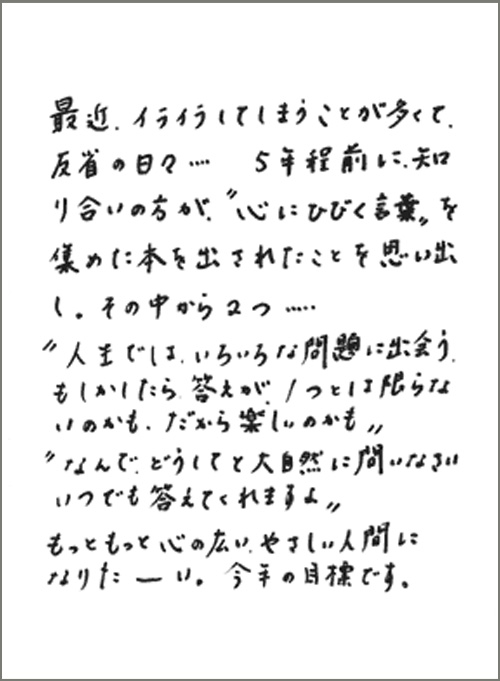 最近、イライラしてしまうことが多くて、
反省の日々‥‥ 5年程前に、知
り合いの方が、〝心にひびく言葉〟を
集めた本を出されたことを思い出
し。その中から2つ‥‥‥
〝人生では、いろいろな問題に出会う、
もしかしたら、答えが、1つとは限らな
いのかも、だから楽しいのかも〟
〝なんで、どうしてと大自然に問いなさい
いつでも答えてくれますよ〟
もっともっと心の広い、やさしい人間に
なりたーい。今年の目標です。